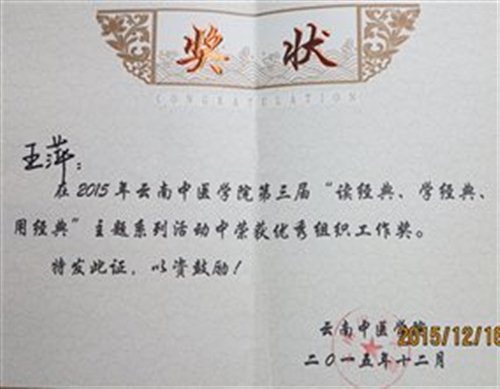 奖状
CONGRATULATION
王萍：
在2015年云南中医学院第三届“读经典、学经典、
用经典”主题系列活动中荣获优秀组织工作奖。
特发此证，以资鼓励！
云南中医学院
2015/12/16
二〇一五年十二月